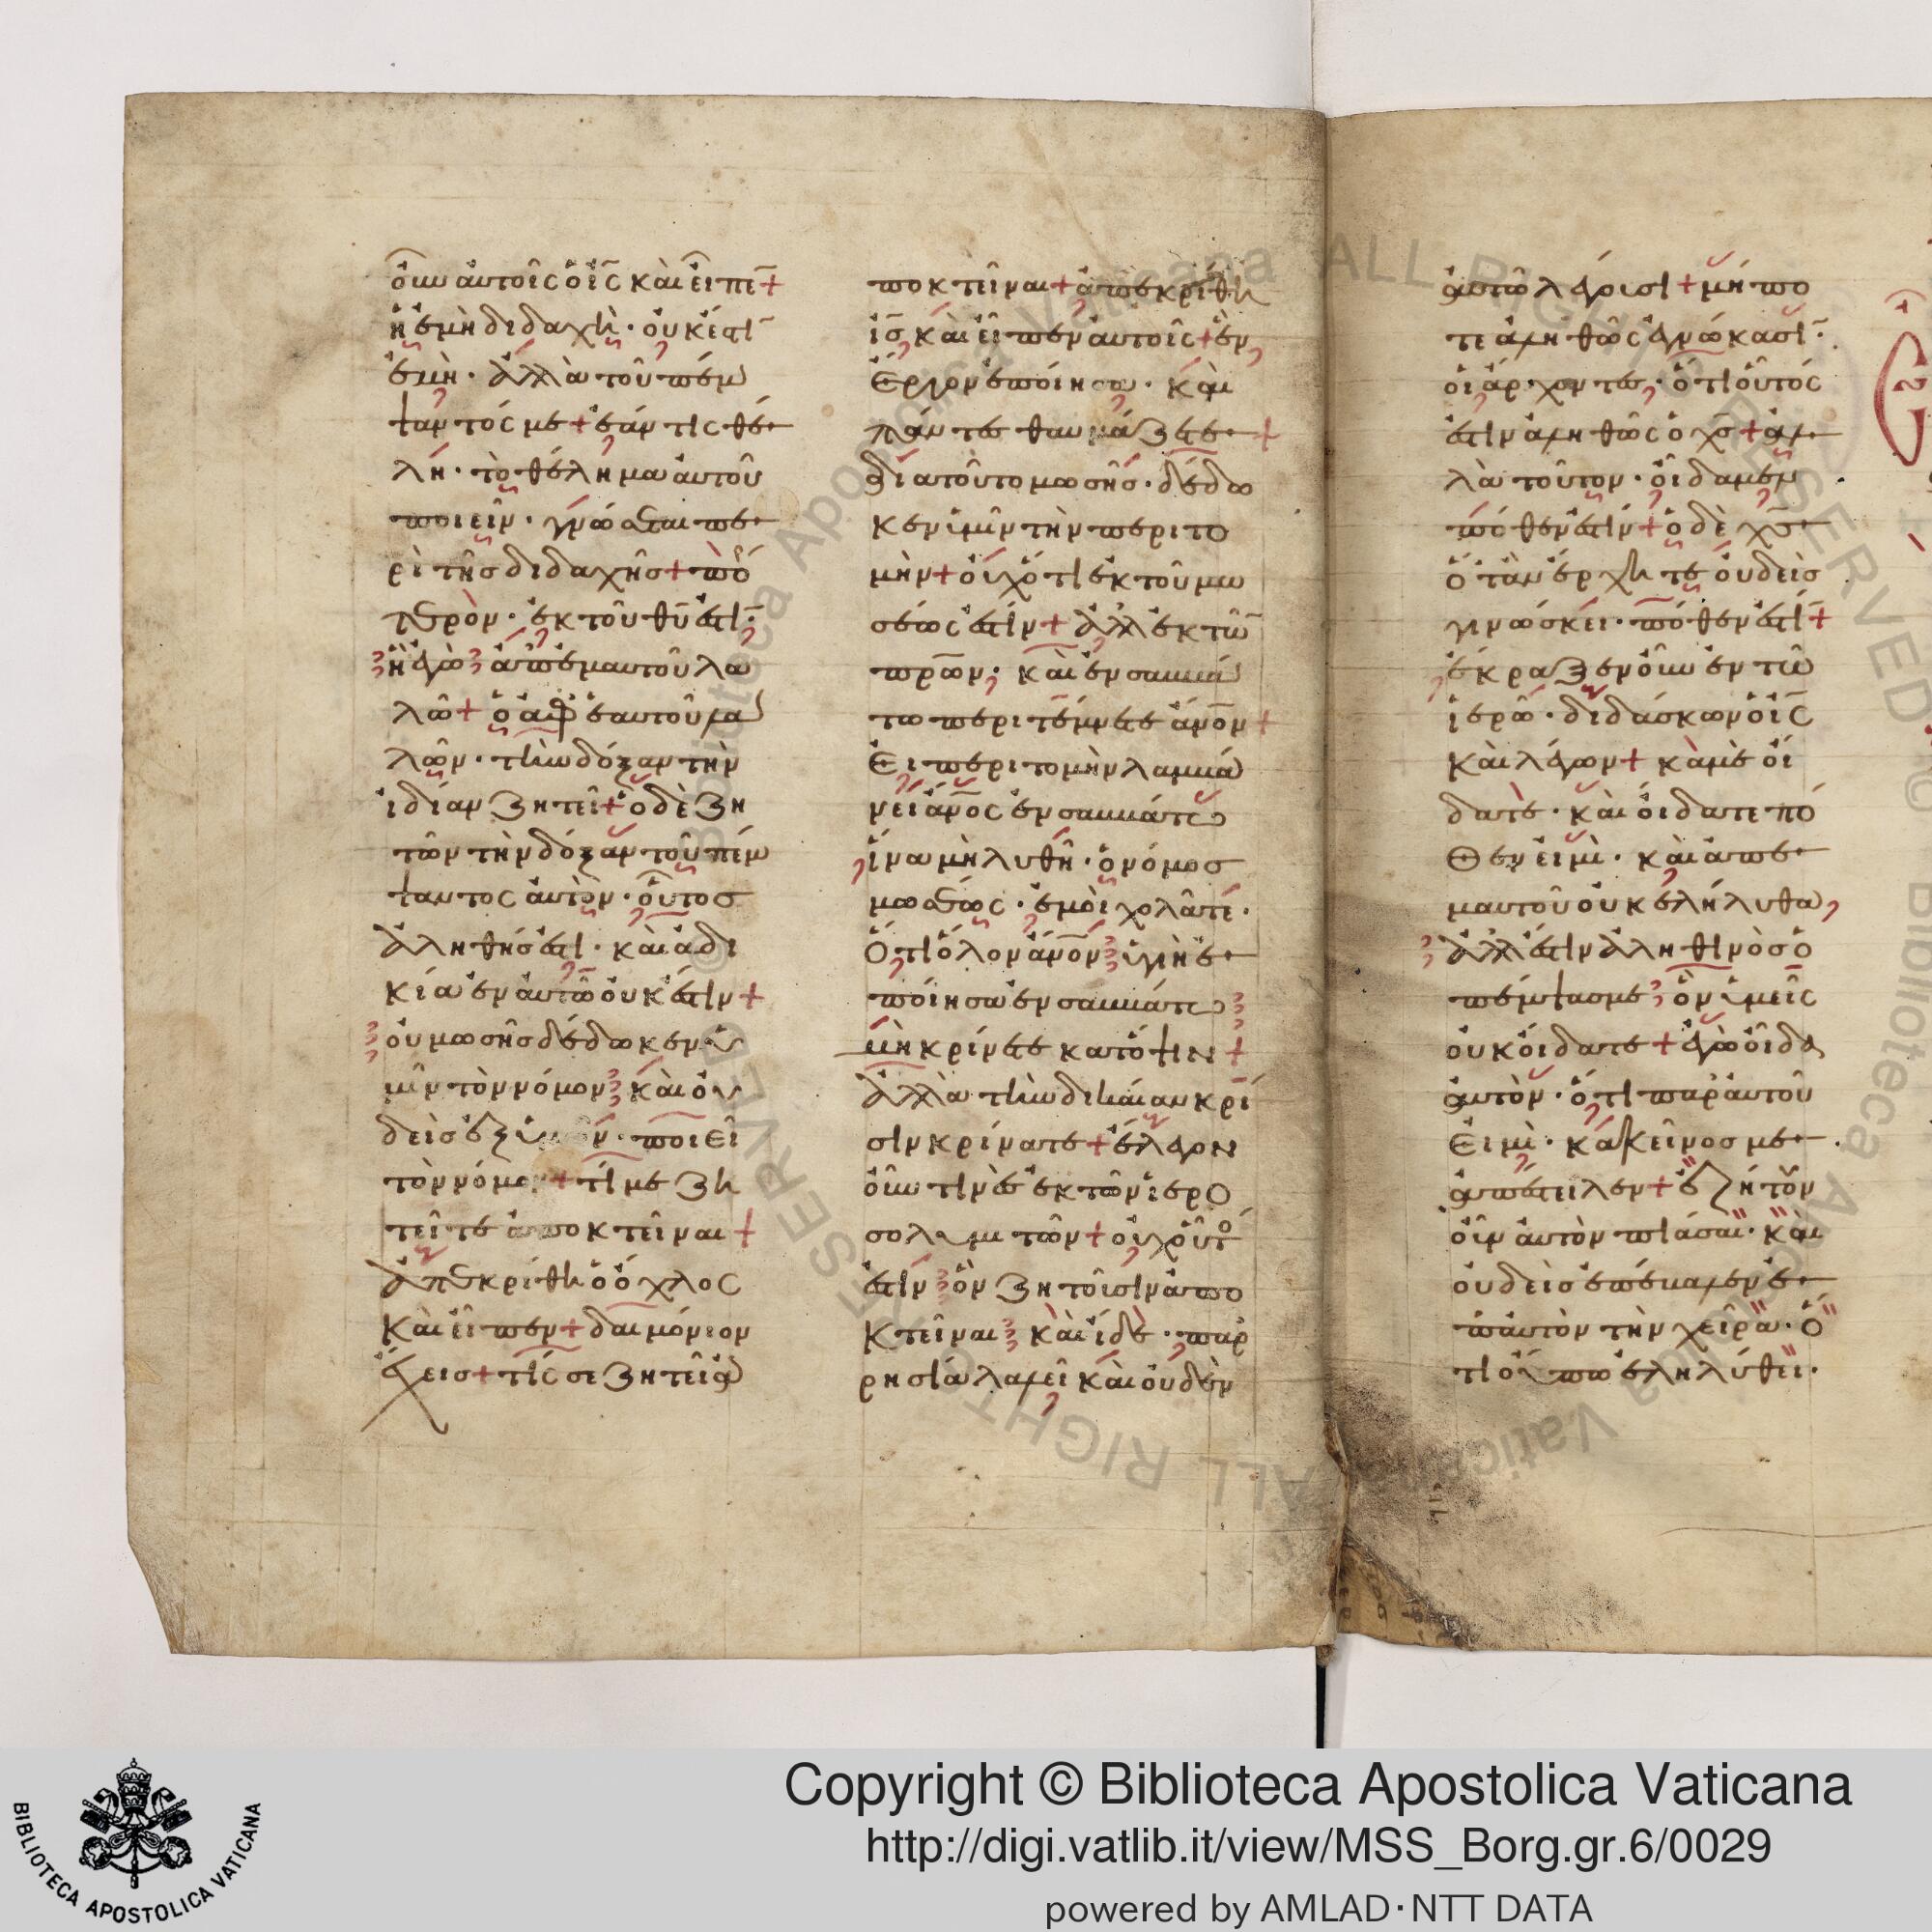 οὖν αὐτοῖς ὁ ἰς̅ καὶ εἶπε̅ +
ἡ ἐμὴ διδαχὴ · οὐκ ἔστι̅
ἐμὴ · ἀλλὰ τοῦ πέμ
ψαντός με + ἐάν τις θέ
λη · τὸ θέλημα αὐτοῦ
ποιεῖν · γνώσεται πε
ρὶ τῆσ διδαχῆσ + πό
τερὸν · ἐκ τοῦ θυ̅ ἐστι̅ ·
ἢ ἐγὼ ἀπ' ἐμαυτοῦ λα
λῶ + ὁ ἀφ' ἑαυτοῦ λα
λῶν · τὴν δόξαν τὴν
ἰδίαν ζητεῖ + ὁ δὲ ζη
τῶν τὴν δόξαν τοῦ πέμ
ψαντος αὐτὸν · οὗτοσ
ἀληθήσ ἐστι · καὶ ἀδι
κία ἐν αὐτῶ οὐκ ἔστιν +
οὐ μωσῆσ δέδωκεν ὑ
μῖν τὸν νόμον καὶ οὐ
δεὶσ ἐξ ὑμῶν · ποιεῖ
τὸν νόμον + τί με ζη
τεῖτε ἀποκτεῖναι +
ἀπεκρίθη ὁ ὄχλος
καὶ εἶπεν + δαιμόνιον
ἔχεισ + τίς σε ζητεῖ ἀ
ποκτεῖναι + ἀπεκρίθη
ἰς̅ καὶ εἶπεν αὐτοῖς + ἓν
ἔργον ἐποίησα · καὶ
πάντες θαυμάζετε +
διὰ τοῦτο μωσῆσ · δέδω
κεν ὑμῖν τὴν περιτο
μὴν + οὐχ ὅτι ἐκ τοῦ μω
σέως ἐστὶν + ἀλλ' ἐκ τῶ̅
πρ̅ων · καὶ ἐν σαββά
τω περιτέμνετε ἄνο̅ν +
Εἰ περιτομὴν λαμβά
νει ἄνο̅ς ἐν σαββάτω
ἵνα μὴ λυθῆ · ὁ νόμοσ
μωσέως · ἐμοὶ χολᾶτε ·
Ὅτι ὅλον ἄνο̅ν ὑγιῆ ἐ
ποίησα ἐν σαββάτω
μὴ κρίνετε κατ' ὄψιν +
ἀλλὰ τὴν δικαίαν κρί
σιν κρίνατε + ἔλεγον
οὖν τινὲς ἐκ τῶν ἱερο
σολυμιτῶν + οὐχ οὗτό
ἐστιν ὃν ζητοῦσιν ἀπο
κτεῖναι καὶ ἴδε · παρ
ρησία λαλεῖ καὶ οὐδὲν
αὐτῶ λέγουσι + μή πο
τε ἀληθῶς ἔγνωκασι̅ ·
οἱ ἄρχοντες · ὅτι οὗτός
ἐστιν ἀληθῶς ὁ χς̅ + ἀλ
λὰ τοῦτον · οἴδαμεν
πόθεν ἐστίν + ὁ δὲ χς̅
ὅταν ἔρχητε οὐδεὶσ
γινώσκει · πόθεν ἐστὶ̅ +
ἔκραζεν οὖν ἐν τῶ
ἱερῶ · διδάσκων ὁ ἰς̅
καὶ λέγων + κἀμὲ οἴ
δατε · καὶ οἴδατε πό
θεν εἰμὶ · καὶ ἀπ' ἐ
μαυτοῦ οὐκ ἐλήλυθα
ἀλλ' ἔστιν ἀληθινὸσ ὁ
πέμψασ με ὃν ὑμεῖς
οὐκ οἴδατε + ἐγὼ οἶδα
αὐτὸν · ὅτι παρ' αὐτοῦ
Εἰμὶ · κἀκεῖνοσ με
ἀπέστειλεν + ἐζήτουν
οὖν αὐτὸν πιάσαι · καὶ
οὐδεὶσ ἐπέβαλεν ἐ
π' αὐτὸν τὴν χεῖρα · ὅ
τι οὔπω ἐλήλύθει ·
Copyright © Biblioteca Apostolica Vaticana
http://digi.vatlib.it/view/MSS_Borg.gr.6/0029
powered by AMLAD·NTT DATA
BIBLIOTECA APOSTOLICA VATICANA